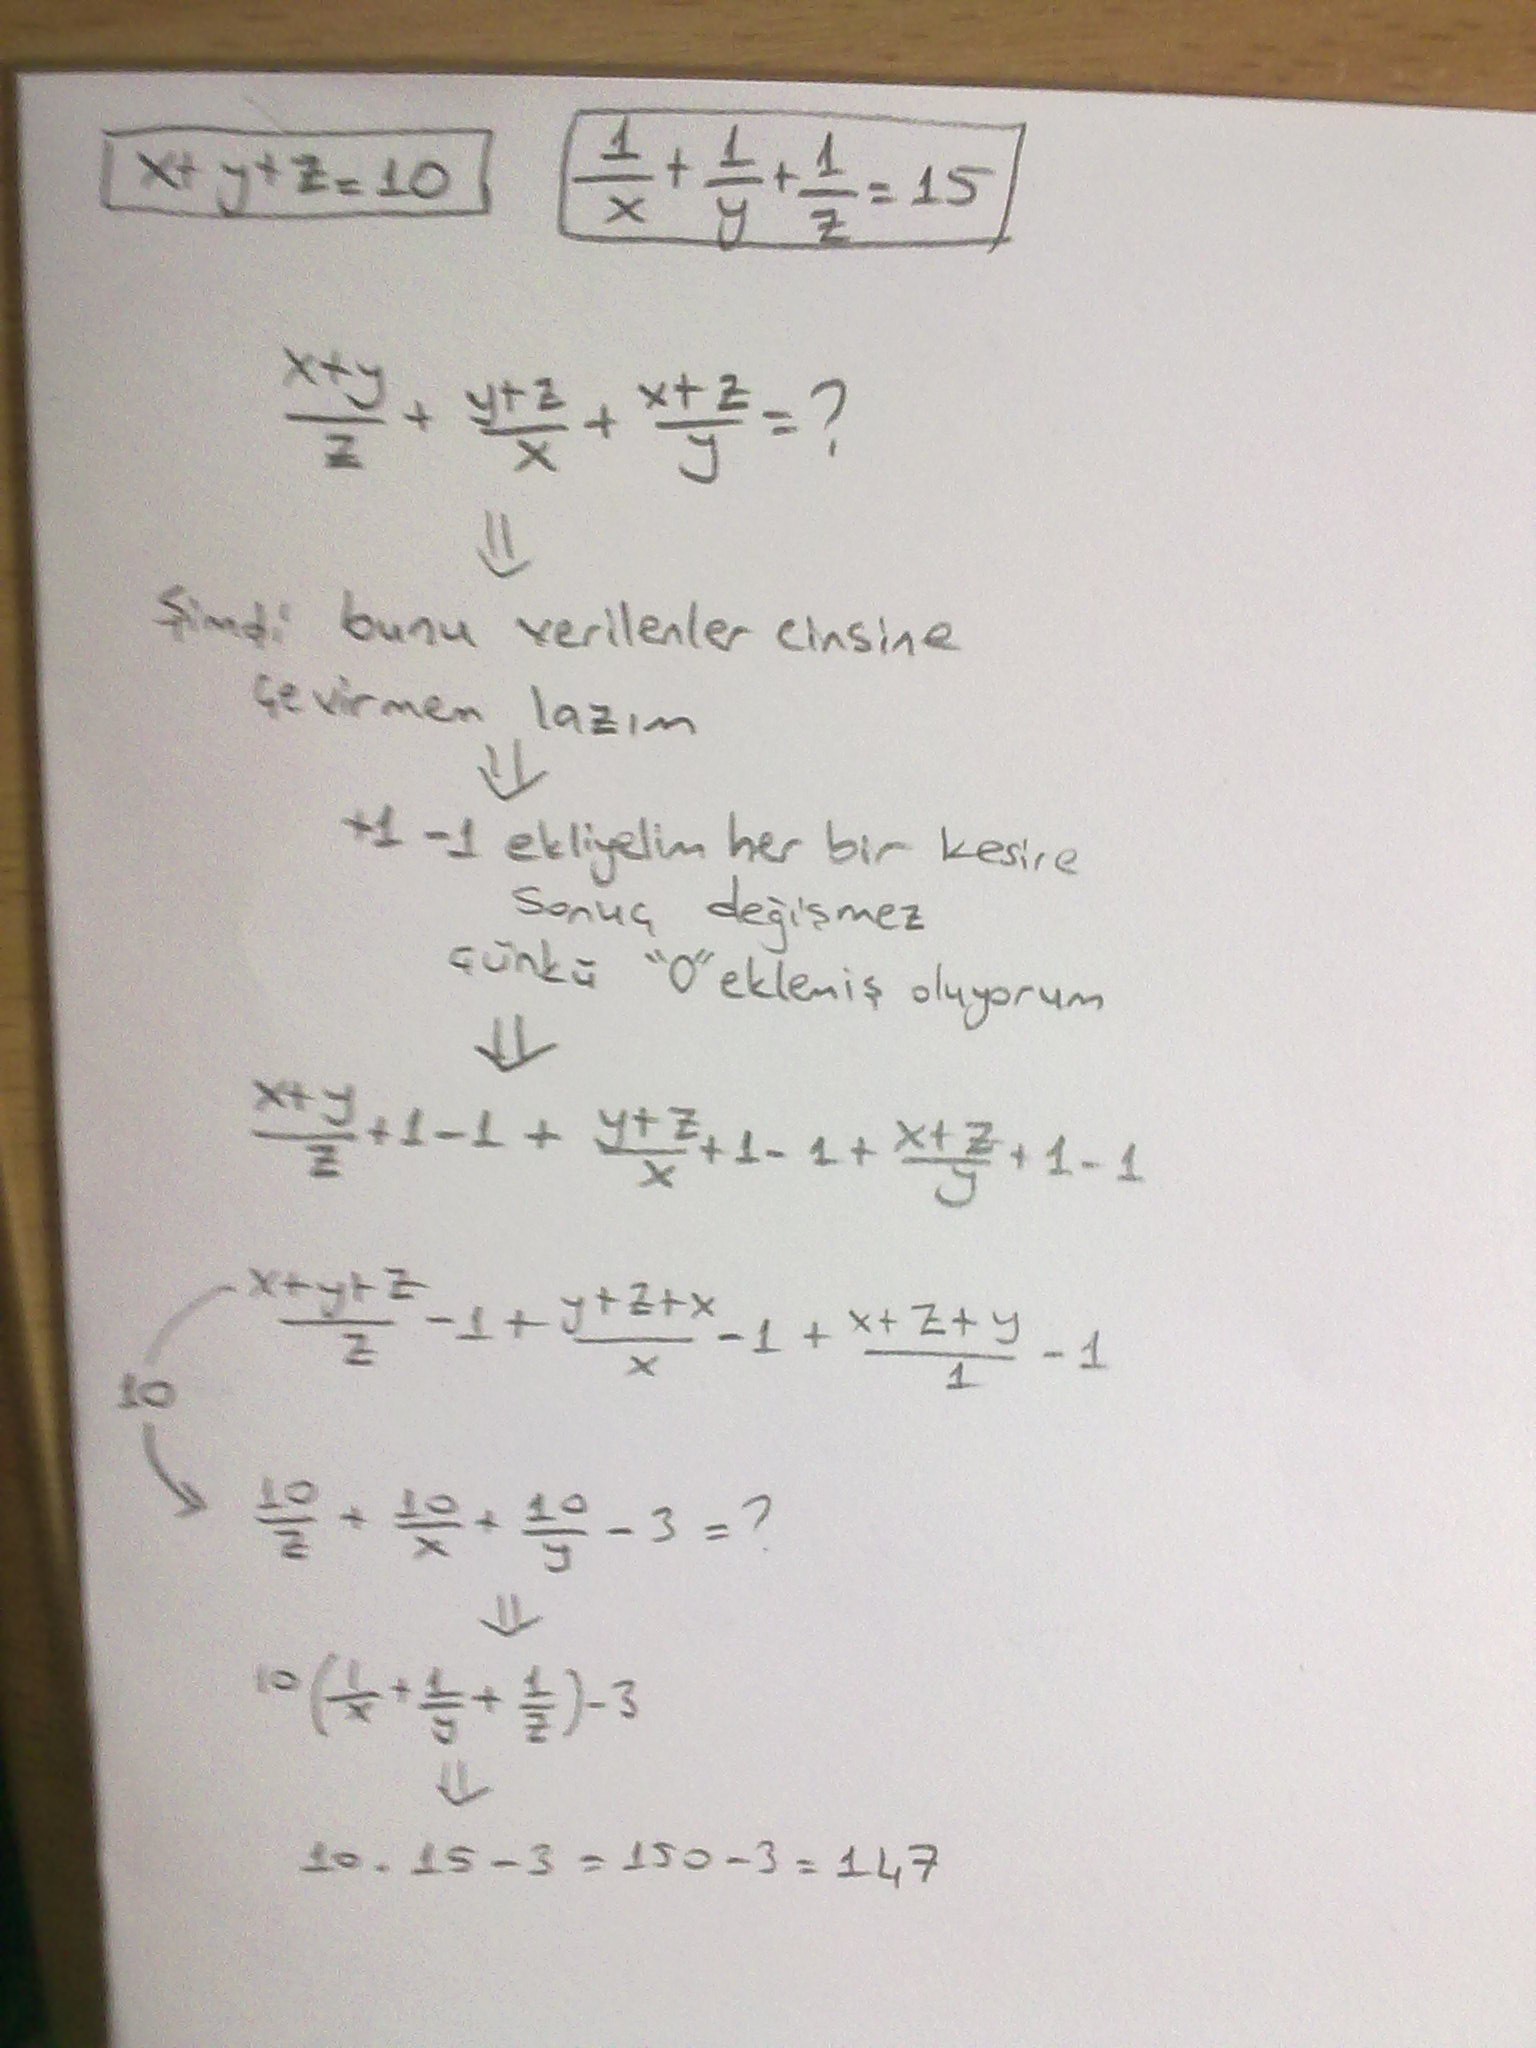 x+y+z=10 1/x + 1/y + 1/z = 15
(x+y)/z + (y+z)/x + (x+z)/y = ?
⇓
Şimdi bunu verilenler cinsine
çevirmem lazım
⇓
+1 -1 ekliyelim her bir kesire
Sonuç değişmez
çünkü "0" eklemiş oluyorum
⇓
(x+y)/z +1-1 + (y+z)/x +1-1 + (x+z)/y +1-1
(x+y+z)/z -1 + (y+z+x)/x -1 + (x+z+y)/1 -1
10
10/z + 10/x + 10/y - 3 = ?
⇓
10(1/x + 1/y + 1/z) - 3
⇓
10 . 15 - 3 = 150 - 3 = 147